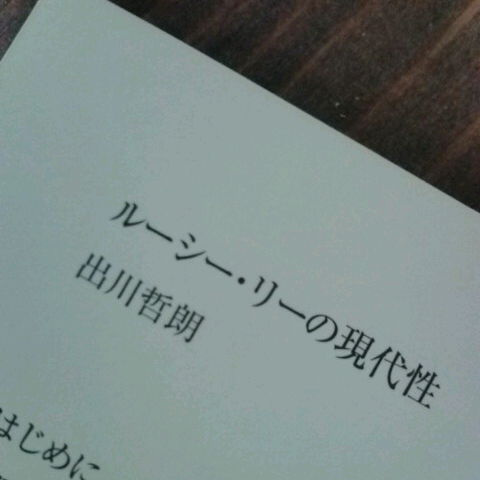 ルーシー・リーの現代性
出川哲朗
はじめに